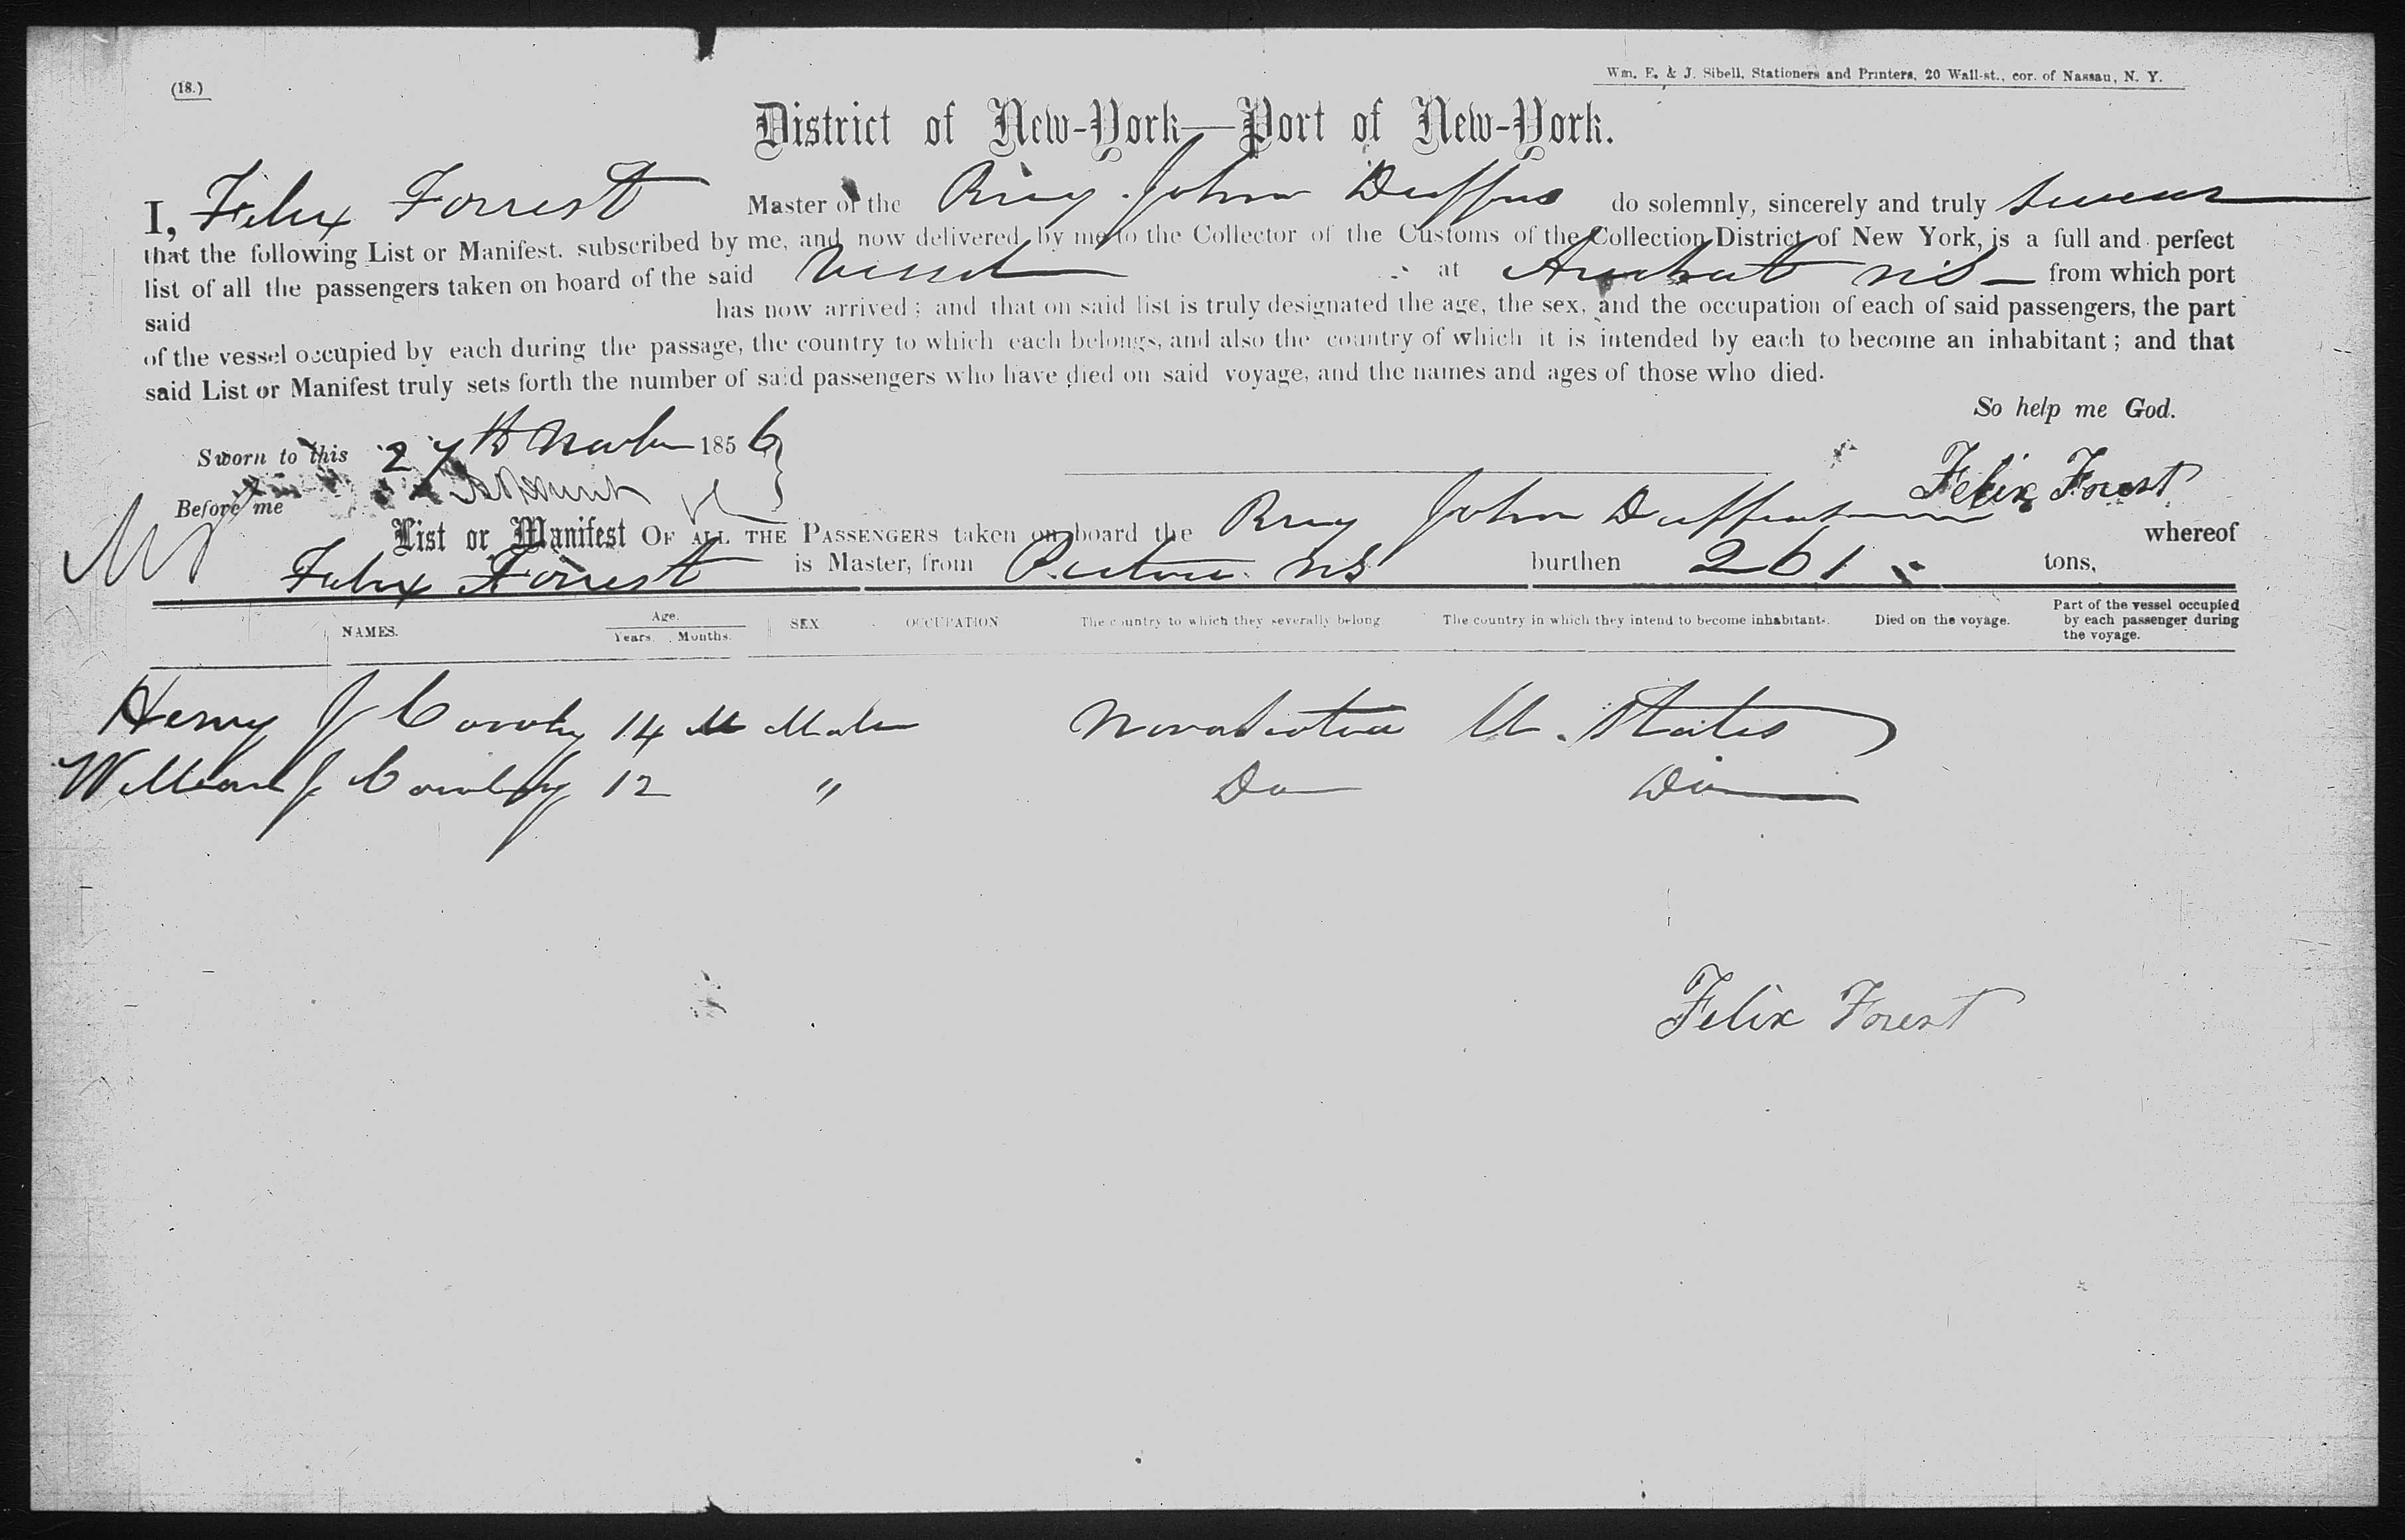 (18.)
Wm. E. & J. Sibell, Stationers and Printers, 20 Wall-st., cor. of Nassau, N. Y.
District of New-York—Port of New-York.
I, Felix Forrest Master of the Brig John Duffus do solemnly, sincerely and truly swear
that the following List or Manifest, subscribed by me, and now delivered by me to the Collector of the Customs of the Collection District of New York, is a full and perfect
list of all the passengers taken on board of the said Vessel at NS from which port
said has now arrived; and that on said list is truly designated the age, the sex, and the occupation of each of said passengers, the part
of the vessel occupied by each during the passage, the country to which each belongs, and also the country of which it is intended by each to become an inhabitant; and that
said List or Manifest truly sets forth the number of said passengers who have died on said voyage, and the names and ages of those who died.
So help me God.
Sworn to this 27th 1856
Felix Forest
Before me
List or Manifest OF ALL THE PASSENGERS taken on board the Brig John Duffus whereof
Felix Forrest is Master, from Pictou NS burthen 261 tons,
NAMES. Age. Years. Months. SEX OCCUPATION The country to which they severally belong The country in which they intend to become inhabitants. Died on the voyage. Part of the vessel occupied by each passenger during the voyage.
Henry J 14 Male Nova Scotia U. States
William J 12 " Do Do
Felix Forest